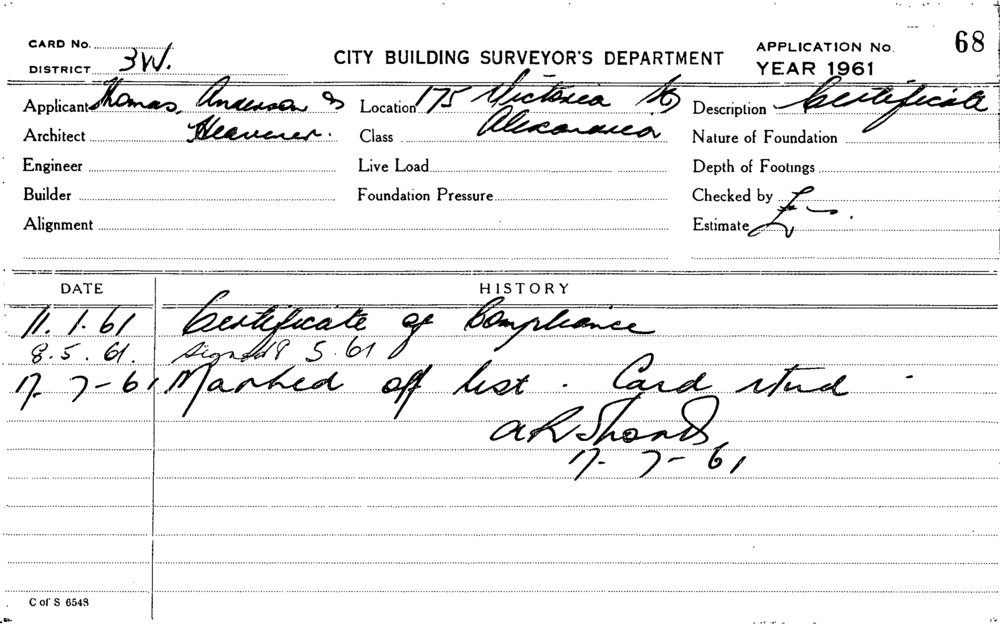 CARD No. 68
DISTRICT 3W. CITY BUILDING SURVEYOR'S DEPARTMENT APPLICATION No.
YEAR 1961
Applicant Thomas, Anderson & Location 175 Victoria St Description Certificate
Architect Heavener. Class Alexandria Nature of Foundation
Engineer Live Load Depth of Footings
Builder Foundation Pressure Checked by
Alignment Estimate £ —.
DATE HISTORY
11.1.61 Certificate of Compliance
8.5.61. signed 8 5.61
17.7-61 Marked off list. Card rtnd
17-7-61
C of S 6548